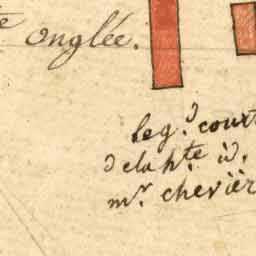 te onglée.
leg.d court
dela h.te id.
mr. chevièr